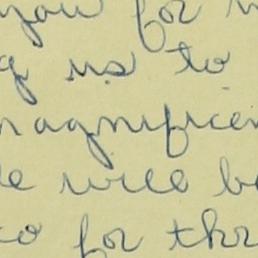 you for
us to
magnificen
we will be
for thr